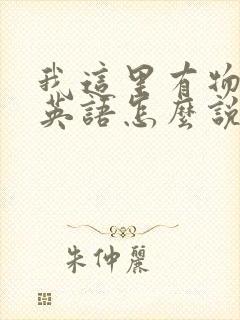 我這里有物
英語怎麼說
朱仲麗